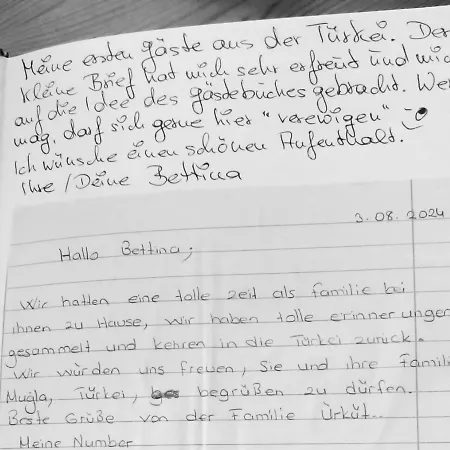 Meine ersten gäste aus der Türkei. Der
kleine Brief hat mich sehr erfreut und mic
auf die Idee des gästebuches gebracht. We
mag, darf sich gerne hier "verewigen"
Ich wünsche einen schönen Aufenthalt.
Ihre / Deine Bettina
3.08.2024
Hallo Bettina;
Wir hatten eine tolle zeit als familie bei
ihnen zu Hause, wir haben tolle erinnerungen
gesammelt und kehren in die Türkei zurück.
Wir würden uns freuen, Sie und ihre Famili
Muğla, Türkei, begrüßen zu dürfen.
Beste Grüße von der Familie Ürküt..
Meine Number